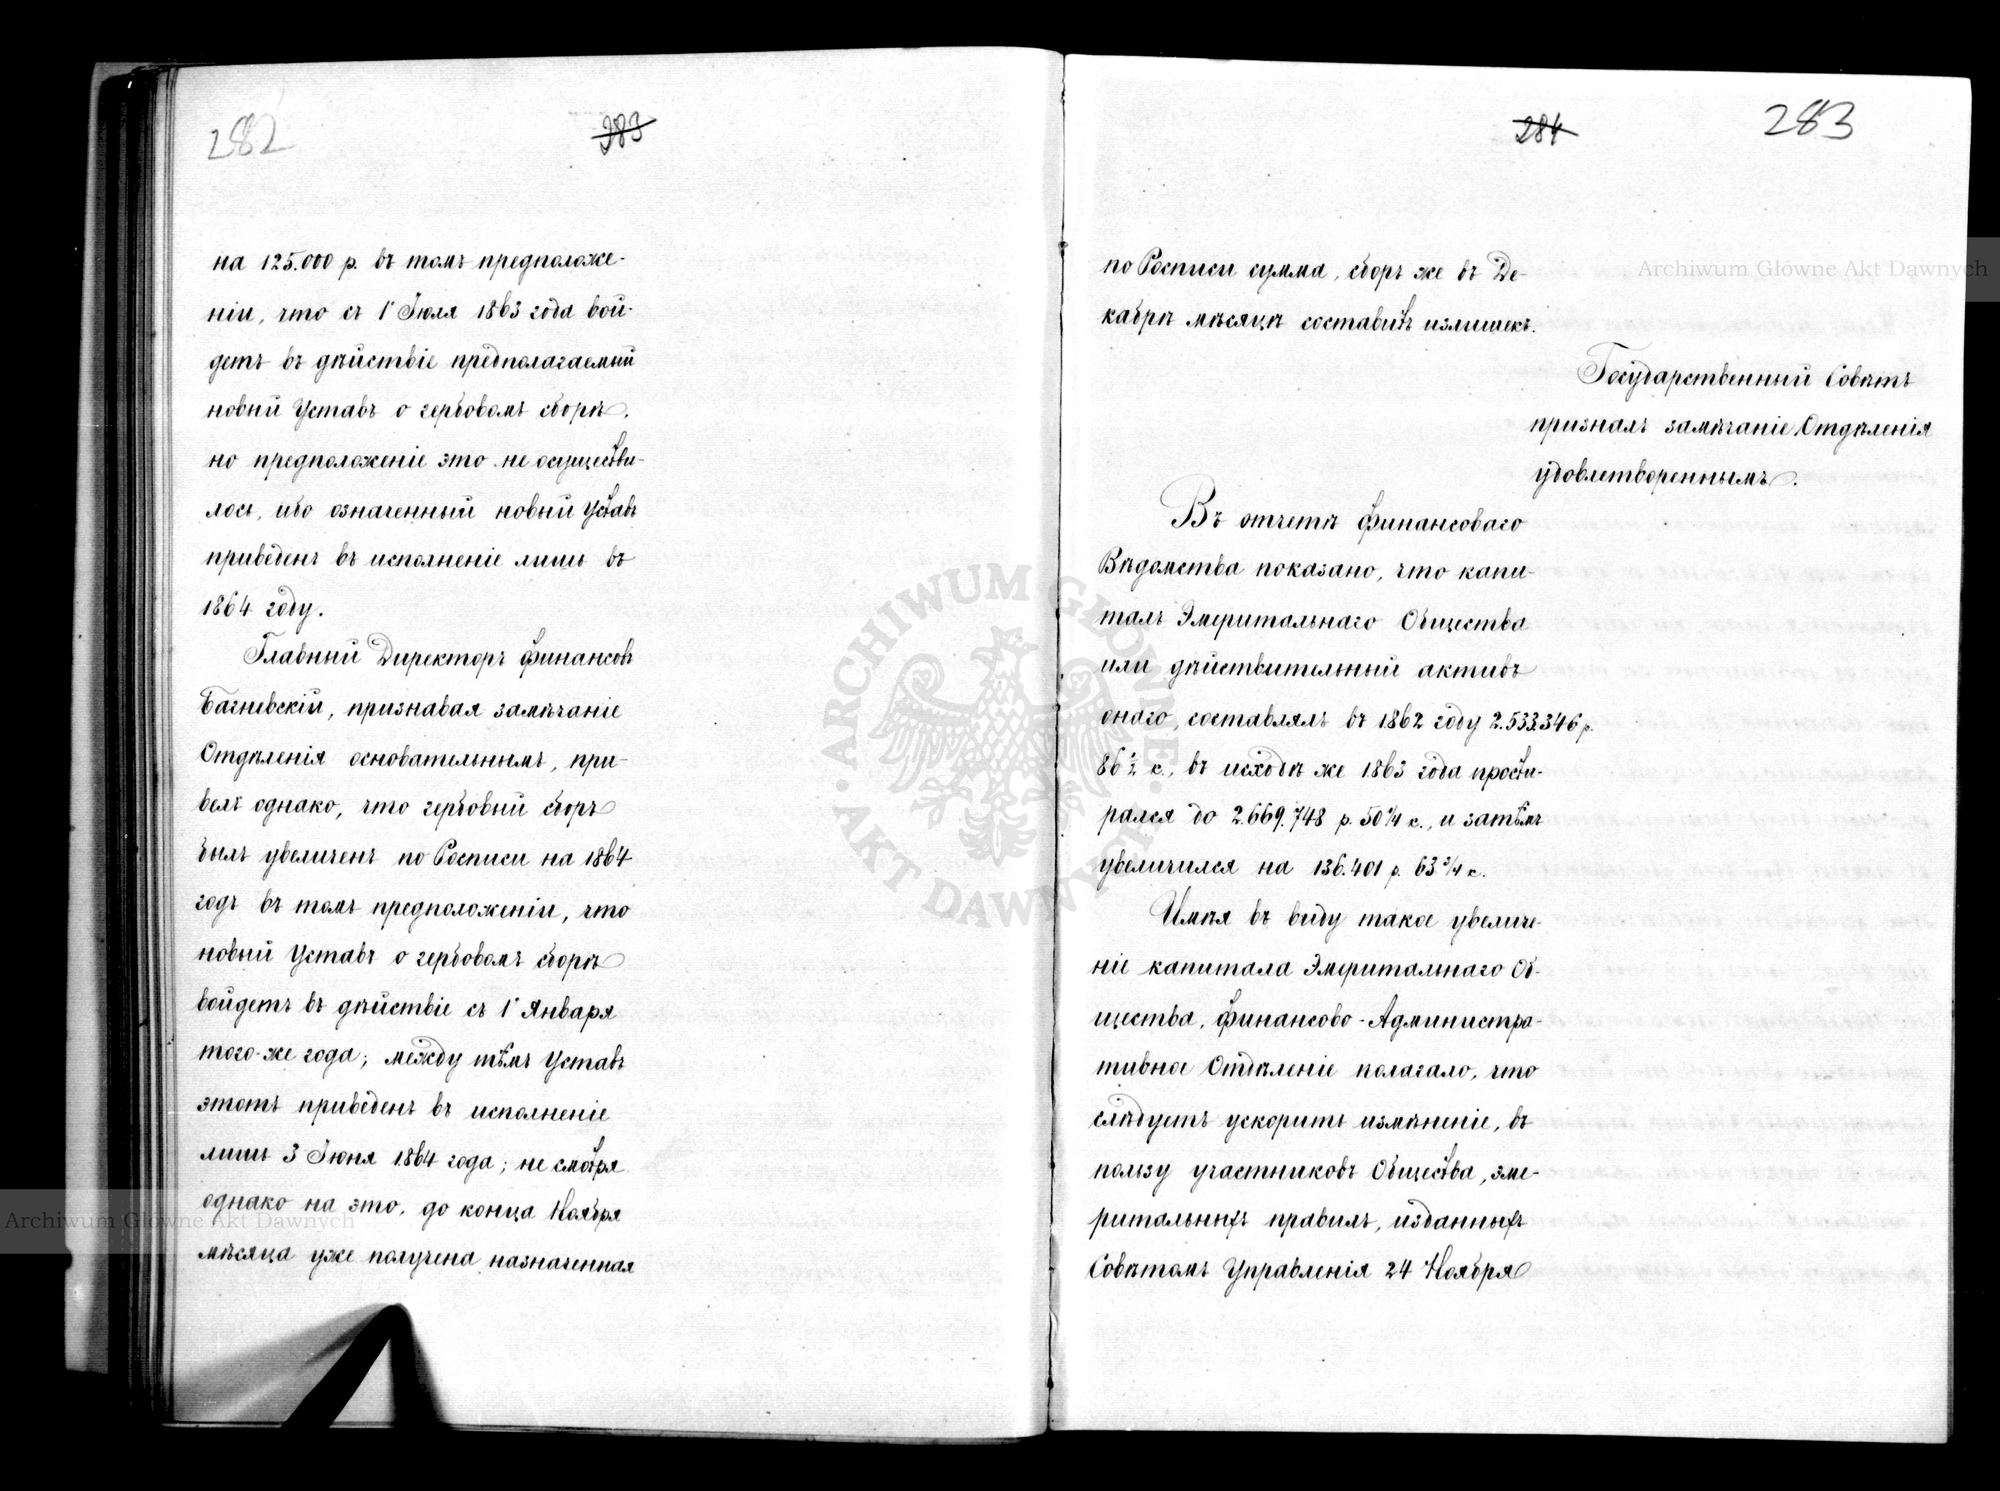 282
383
на 125.000 р. въ томъ предположе-
ніи, что съ 1 Іюля 1863 года вой-
детъ въ дѣйствіе предполагаемый
новый Уставъ о гербовомъ сборѣ,
но предположеніе это не осуществи-
лось, ибо означенный новый Уставъ
приведенъ въ исполненіе лишь въ
1864 году.
Главный Директоръ Финансовъ
Багневскій, признавая замѣчаніе
Отдѣленія основательнымъ, при-
велъ однако, что гербовый сборъ
былъ увеличенъ по Росписи на 1864
годъ въ томъ предположеніи, что
новый Уставъ о гербовомъ сборѣ
войдетъ въ дѣйствіе съ 1 Января
того-же года; между тѣмъ Уставъ
этотъ приведенъ въ исполненіе
лишь 3 Іюня 1864 года; не смотря
однако на это, до конца Ноября
мѣсяца уже получена назначенная
284
283
по Росписи сумма, сборъ же въ Де-
кабрѣ мѣсяцѣ составитъ излишекъ.
Государственный Совѣтъ
призналъ замѣчаніе Отдѣленія
удовлетвореннымъ.
Въ отчетѣ Финансоваго
Вѣдомства показано, что капи-
талъ Эмеритальнаго Общества
или дѣйствительный активъ
онаго, составлялъ въ 1862 году 2.533.346 р.
86 1/2 к., въ исходѣ же 1863 года прости-
рался до 2.669.748 р. 50 1/4 к., и затѣмъ
увеличился на 136.401 р. 63 3/4 к.
Имѣя въ виду такое увеличе-
ніе капитала Эмеритальнаго Об-
щества, Финансово-Администра-
тивное Отдѣленіе полагало, что
слѣдуетъ ускорить измѣненіе, въ
пользу участниковъ Общества, эме-
ритальныхъ правилъ, изданныхъ
Совѣтомъ Управленія 24 Ноября
Archiwum Główne Akt Dawnych
Archiwum Główne Akt Dawnych
ARCHIWUM GŁÓWNE · AKT DAWNYCH ·